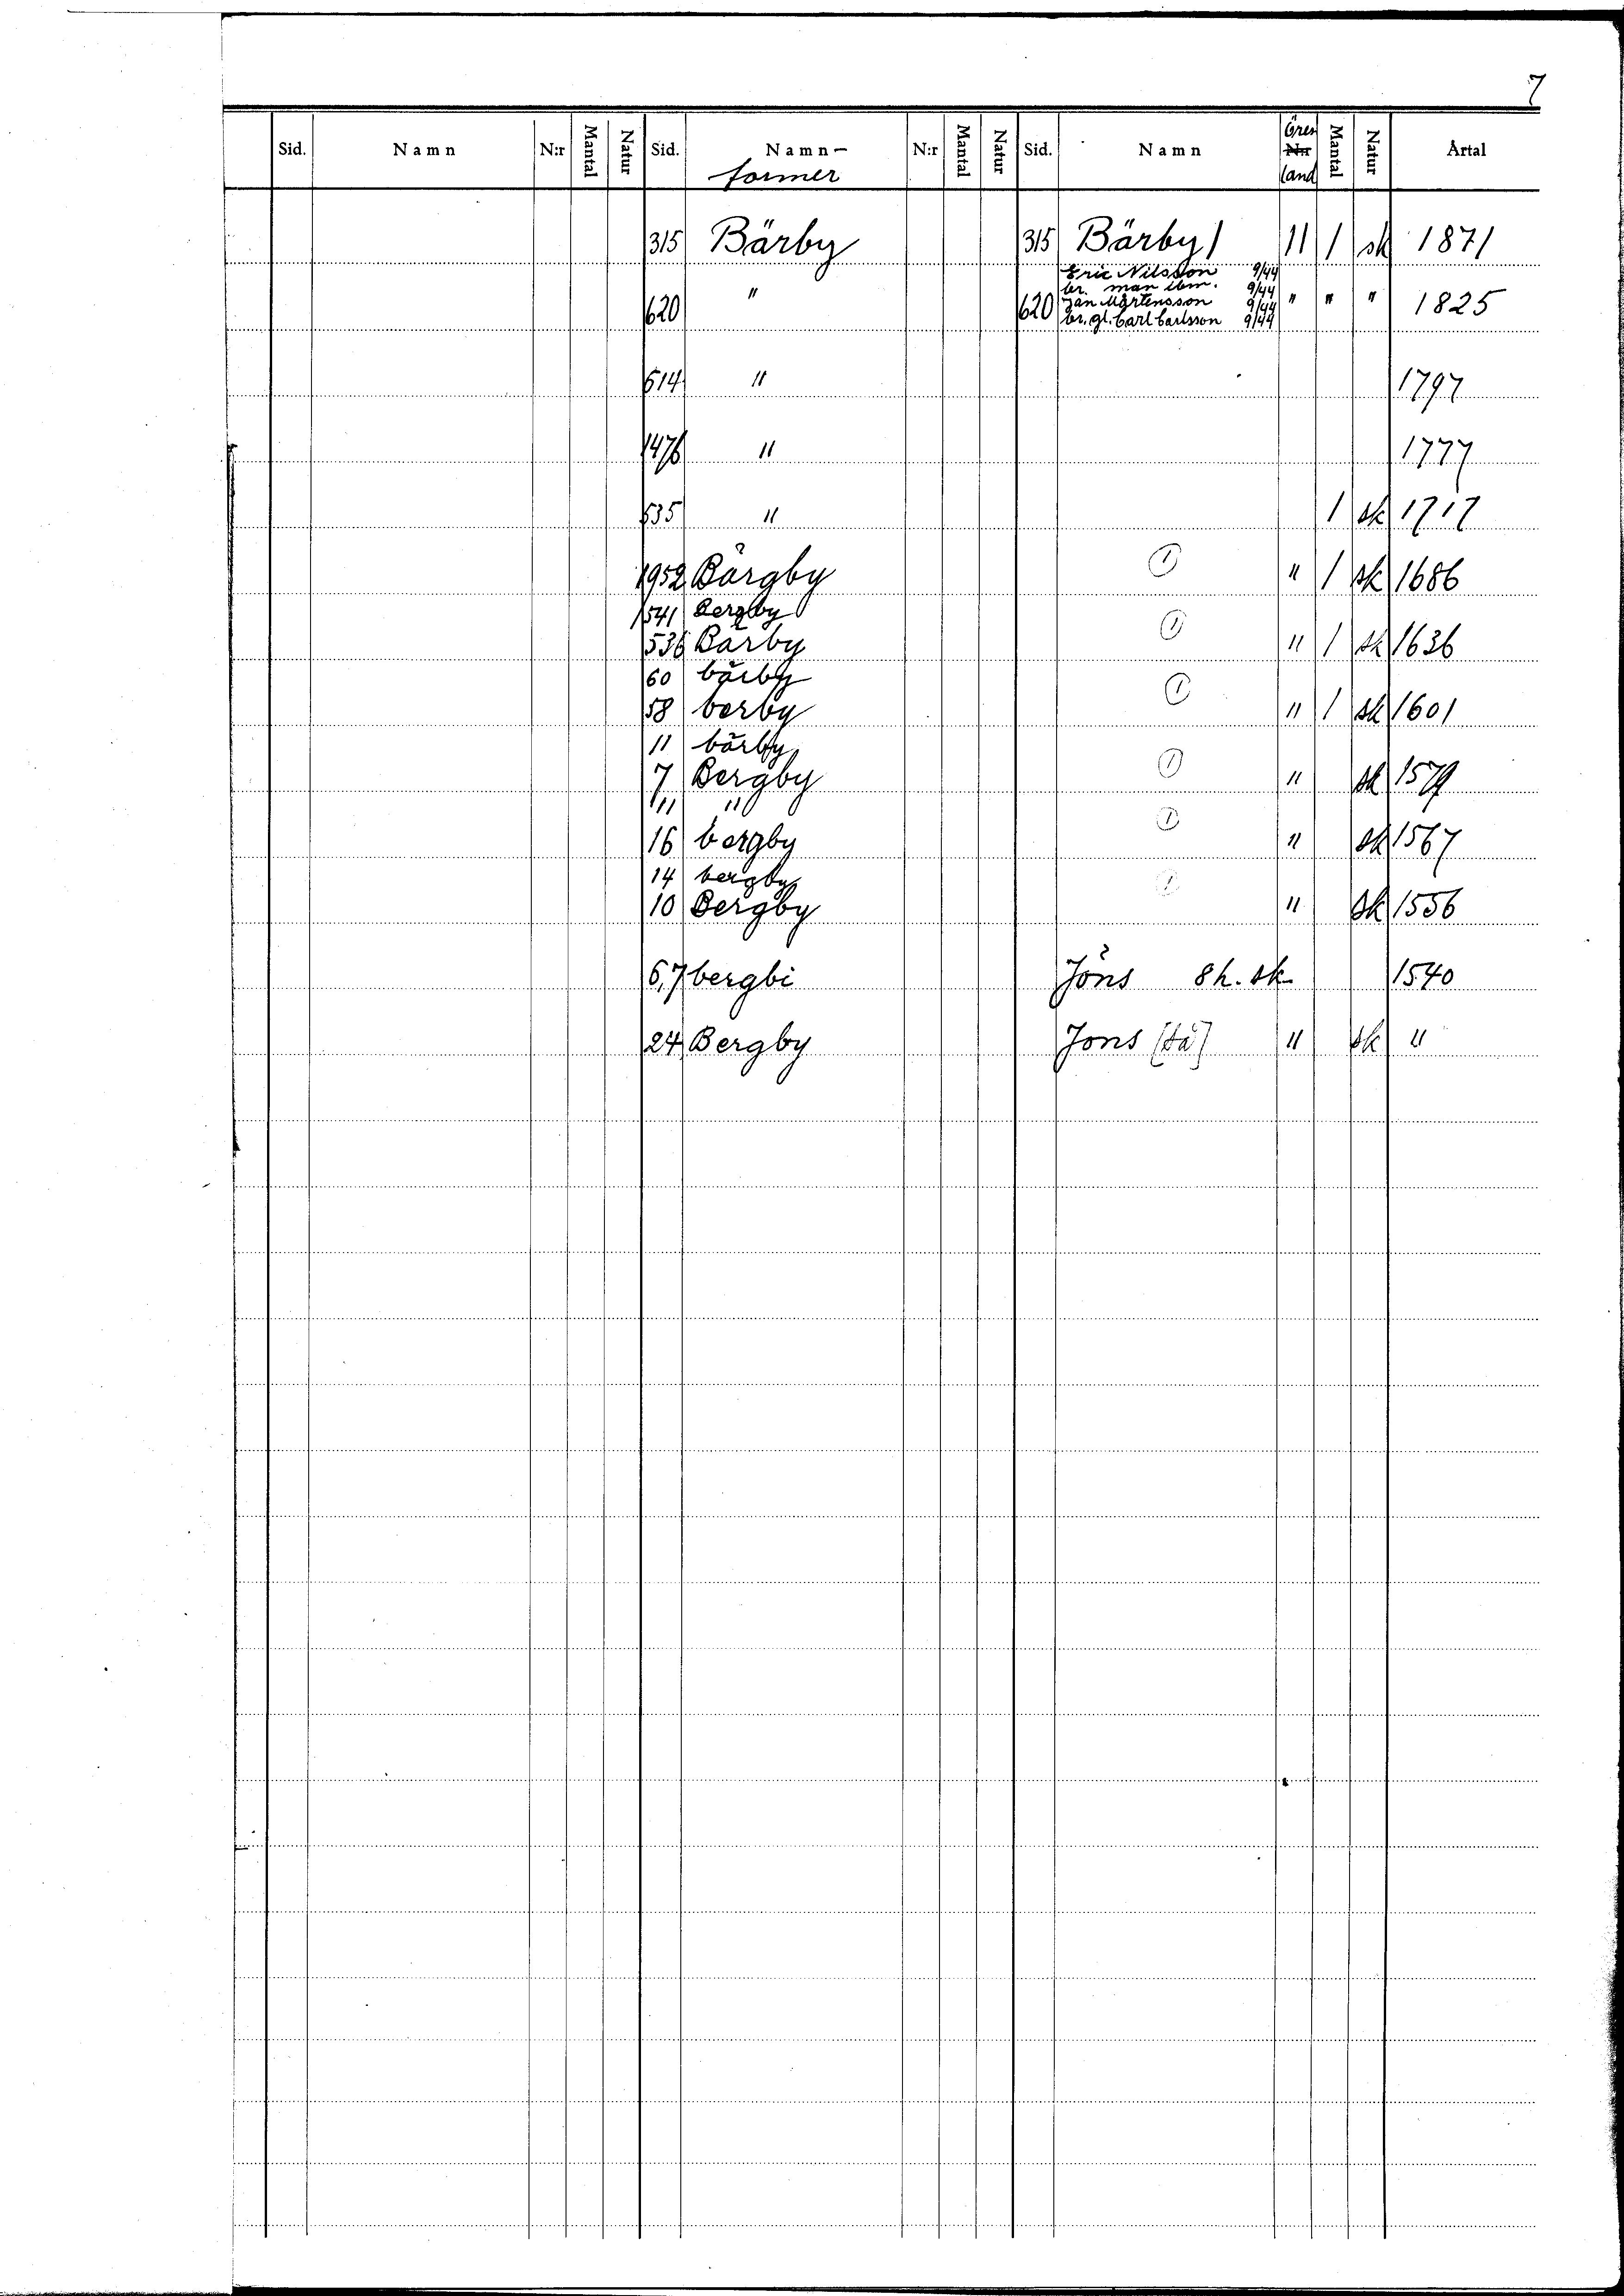 7
Sid. Namn N:r Mantal Natur Sid. Namn- former N:r Mantal Natur Sid. Namn Öres N:r land Mantal Natur Årtal
315 Bärby 315 Bärby 1 11 1 sk 1871
Eric Nilsson 9/44
br. man ibm. 9/44
620 " 620 Jan Mårtensson 9/44 " " " 1825
br. gl. Carl Carlsson 9/44
514 " 1797
1476 " 1777
535 " 1 sk 1717
1952 Bärgby 1 " 1 sk 1686
1541 Bergby
536 Bärby 1 " 1 sk 1636
60 bärby
58 berby 1 " 1 sk 1601
11 bärby
7 Bergby 1 " sk 1579
" "
16 bergby 1 " sk 1567
14 bergby
10 Bergby 1 " sk 1556
6,7 bergbi Jöns 8h. sk. 1540
24 Bergby Jons [så] " sk "